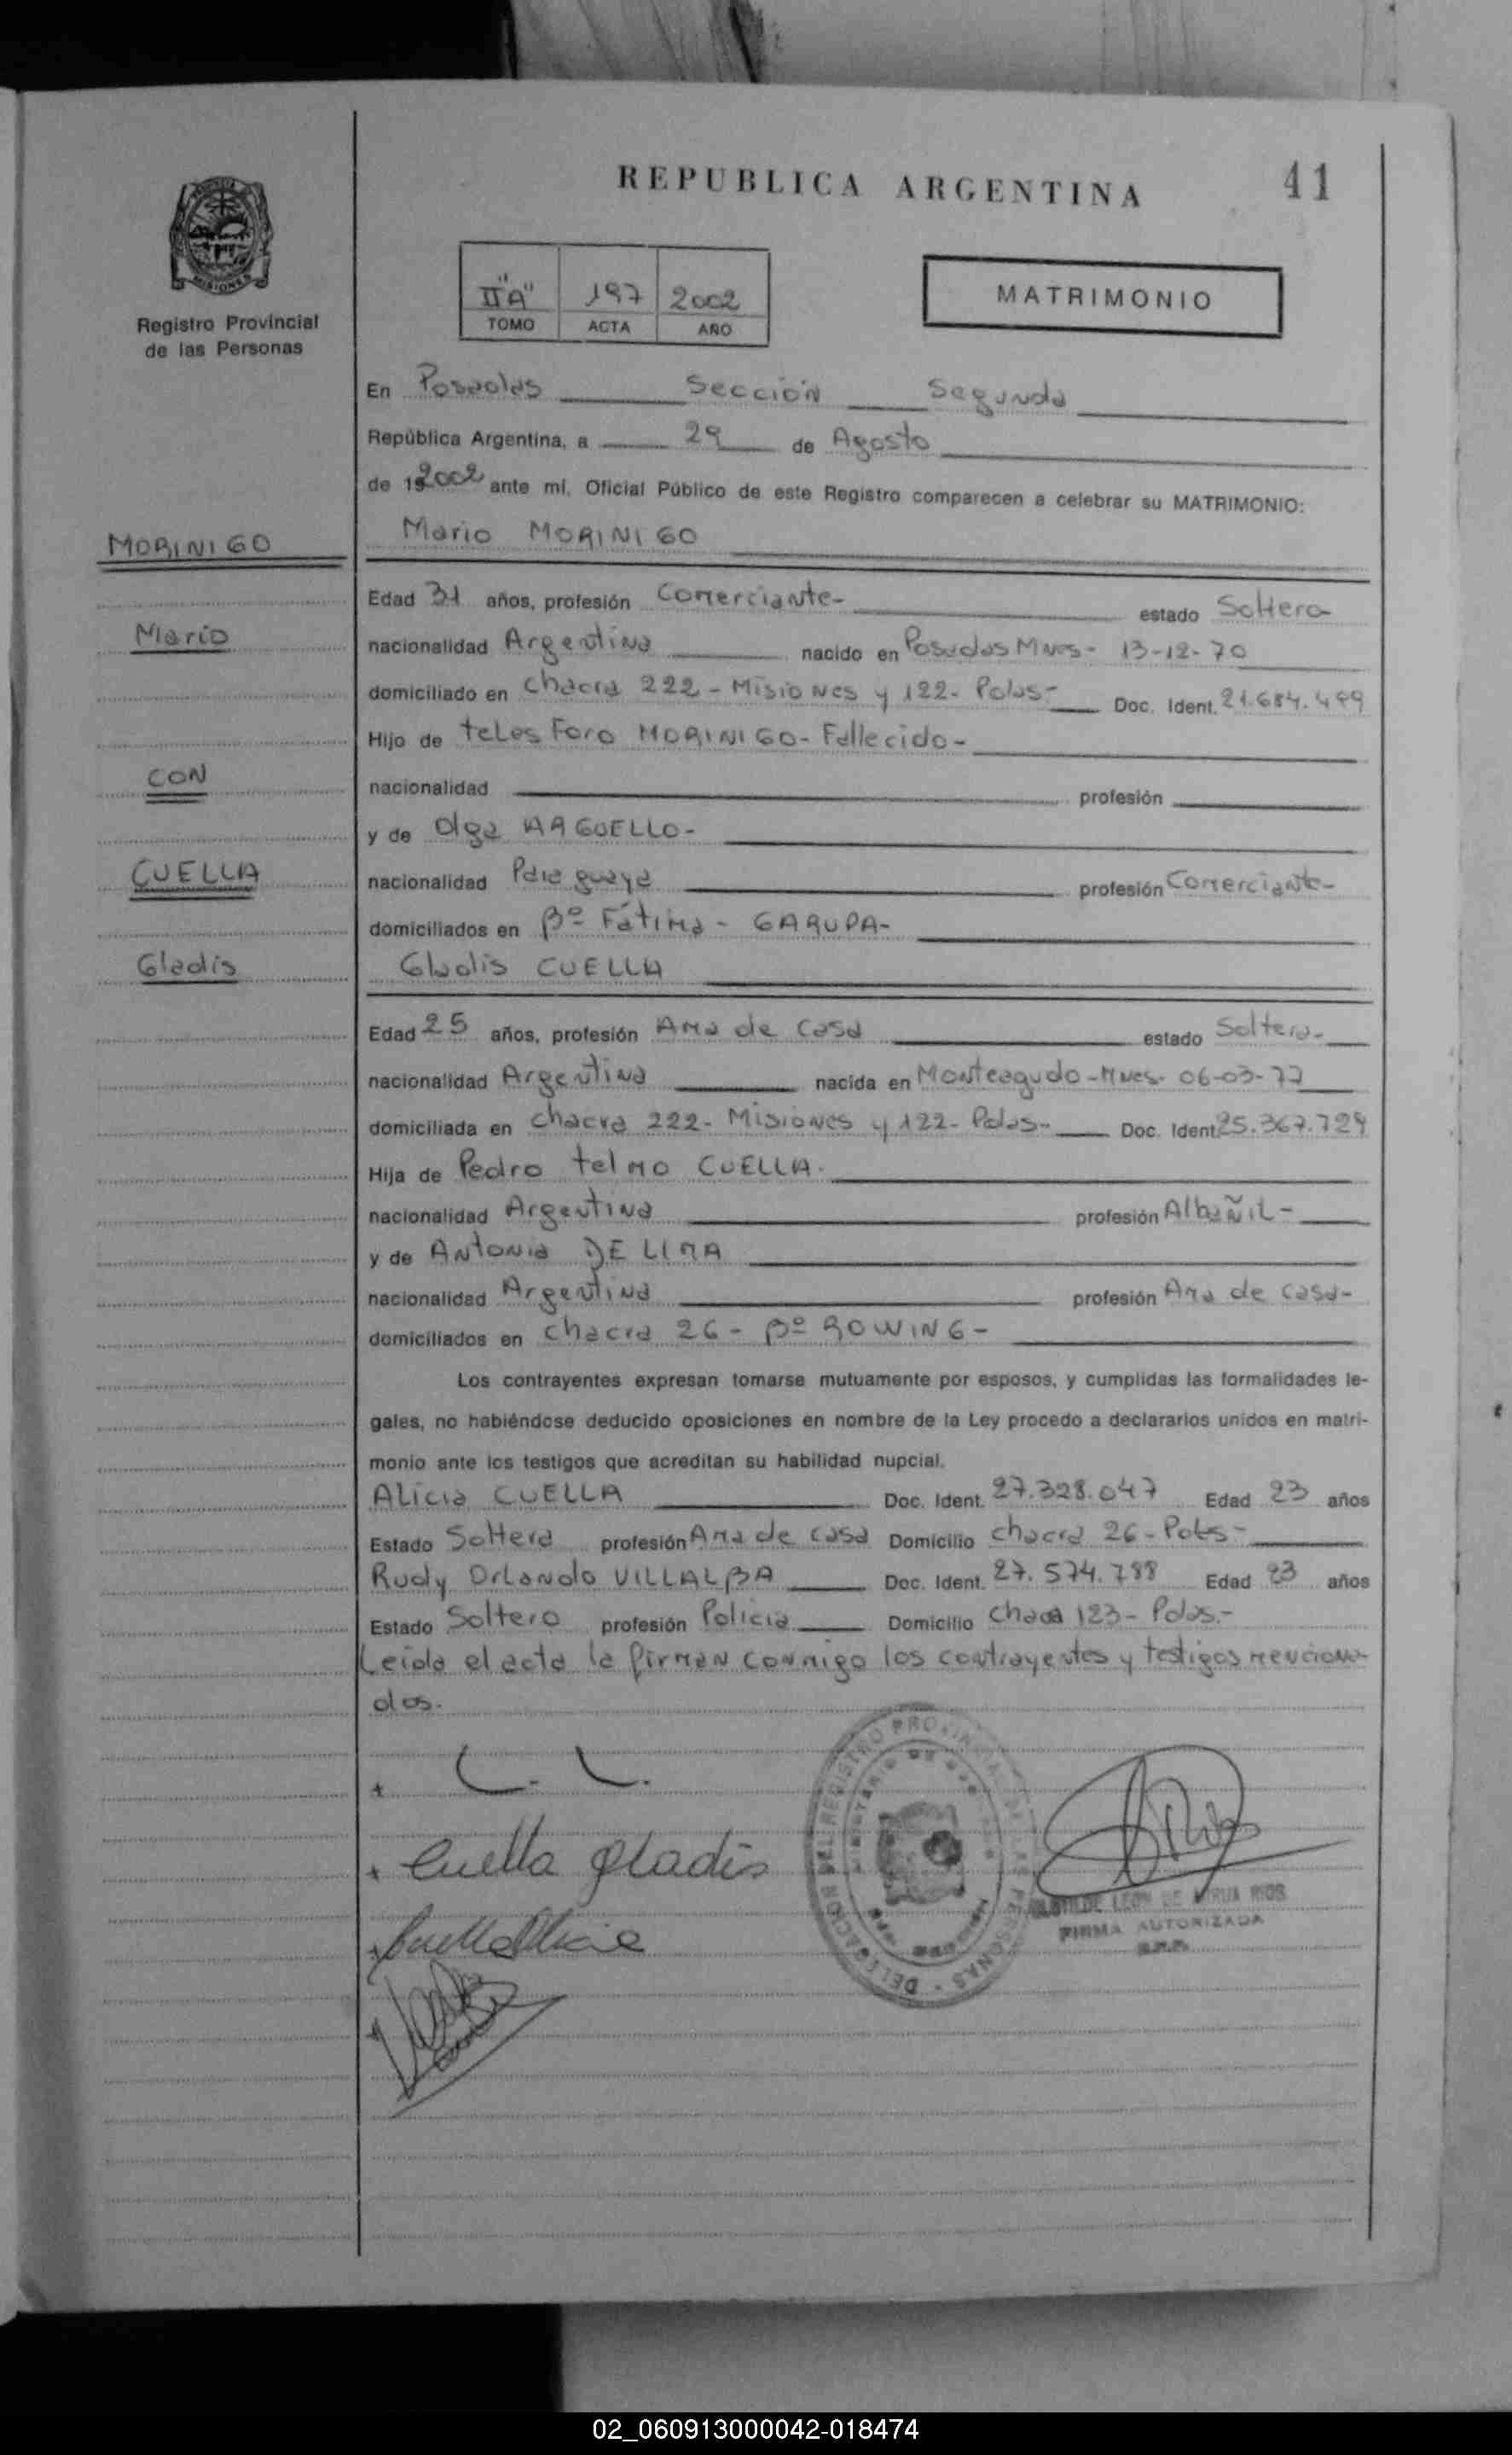 REPUBLICA ARGENTINA
41
MISIONES
Registro Provincial
de las Personas
II "A" 197 2002
TOMO ACTA AÑO
MATRIMONIO
En Posadas Sección Segunda
República Argentina, a 29 de Agosto
de 2002 ante mí, Oficial Público de este Registro comparecen a celebrar su MATRIMONIO:
MORINIGO
Mario MORINIGO
Edad 31 años, profesión Comerciante- estado Soltero
Mario
nacionalidad Argentina nacido en Posadas Mnes- 13-12-70
domiciliado en chacra 222- Misiones y 122- Pdas- Doc. Ident. 21.684.499
Hijo de telesforo MORINIGO- Fallecido-
CON
nacionalidad profesión
y de Olga ARGUELLO-
CUELLA
nacionalidad Paraguaya profesión Comerciante-
domiciliados en Bº Fátima- GARUPA-
Gladis
Gladis CUELLA
Edad 25 años, profesión Ama de casa estado Soltera-
nacionalidad Argentina nacida en Monteagudo-Mnes- 06-03-77
domiciliada en chacra 222- Misiones y 122- Pdas- Doc. Ident. 25.367.729
Hija de Pedro telmo CUELLA.
nacionalidad Argentina profesión Albañil-
y de Antonia DE LIMA
nacionalidad Argentina profesión Ama de casa-
domiciliados en chacra 26- Bº ROWING-
Los contrayentes expresan tomarse mutuamente por esposos, y cumplidas las formalidades le-
gales, no habiéndose deducido oposiciones en nombre de la Ley procedo a declararlos unidos en matri-
monio ante los testigos que acreditan su habilidad nupcial.
Alicia CUELLA Doc. Ident. 27.328.047 Edad 23 años
Estado Soltera profesión Ama de casa Domicilio chacra 26-Pdas-
Rudy Orlando VILLALBA Doc. Ident. 27.574.788 Edad 23 años
Estado Soltero profesión Policia Domicilio Chacra 123- Pdas.-
Leida el acta la firman conmigo los contrayentes y testigos menciona-
dos.
Cuella Gladis
Cuella Alicia
DELEGACION DEL REGISTRO PROVINCIAL DE LAS PERSONAS
LEON DE RIOS
FIRMA AUTORIZADA
02_060913000042-018474